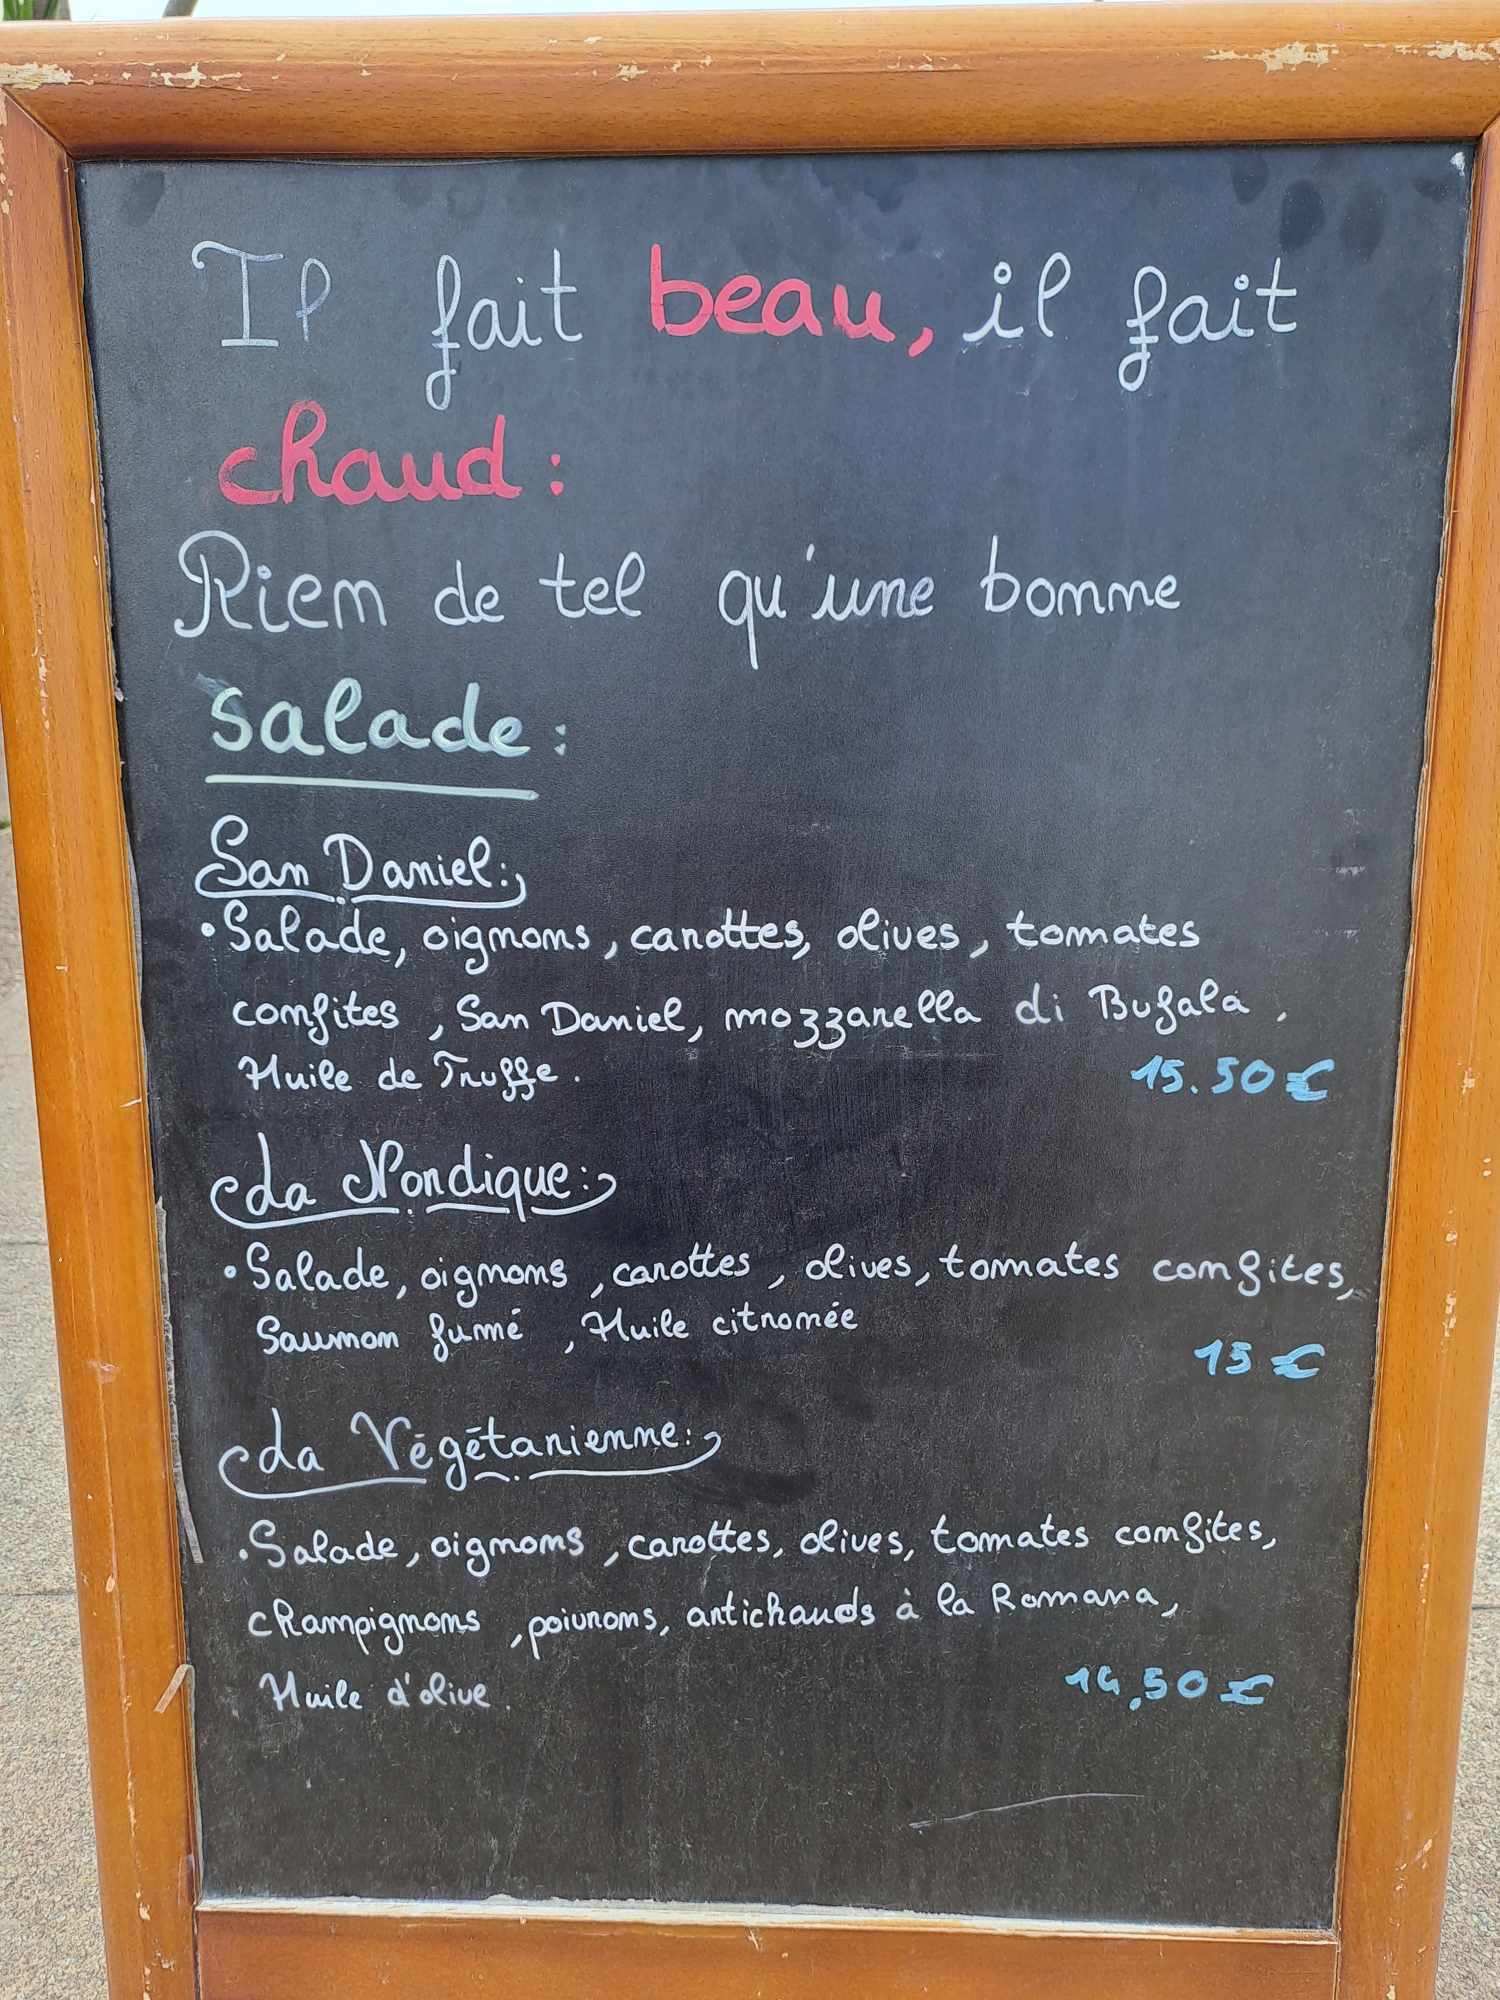 Il fait beau, il fait
chaud :
Rien de tel qu'une bonne
salade :
San Daniel :
• Salade, oignons, carottes, olives, tomates
confites, San Daniel, mozzarella di Bufala,
Huile de Truffe. 15.50€
La Nordique :
• Salade, oignons, carottes, olives, tomates confites,
Saumon fumé, Huile citronnée
15 €
La Végétarienne :
• Salade, oignons, carottes, olives, tomates confites,
champignons, poivrons, artichauds à la Romana,
Huile d'olive. 14,50 €